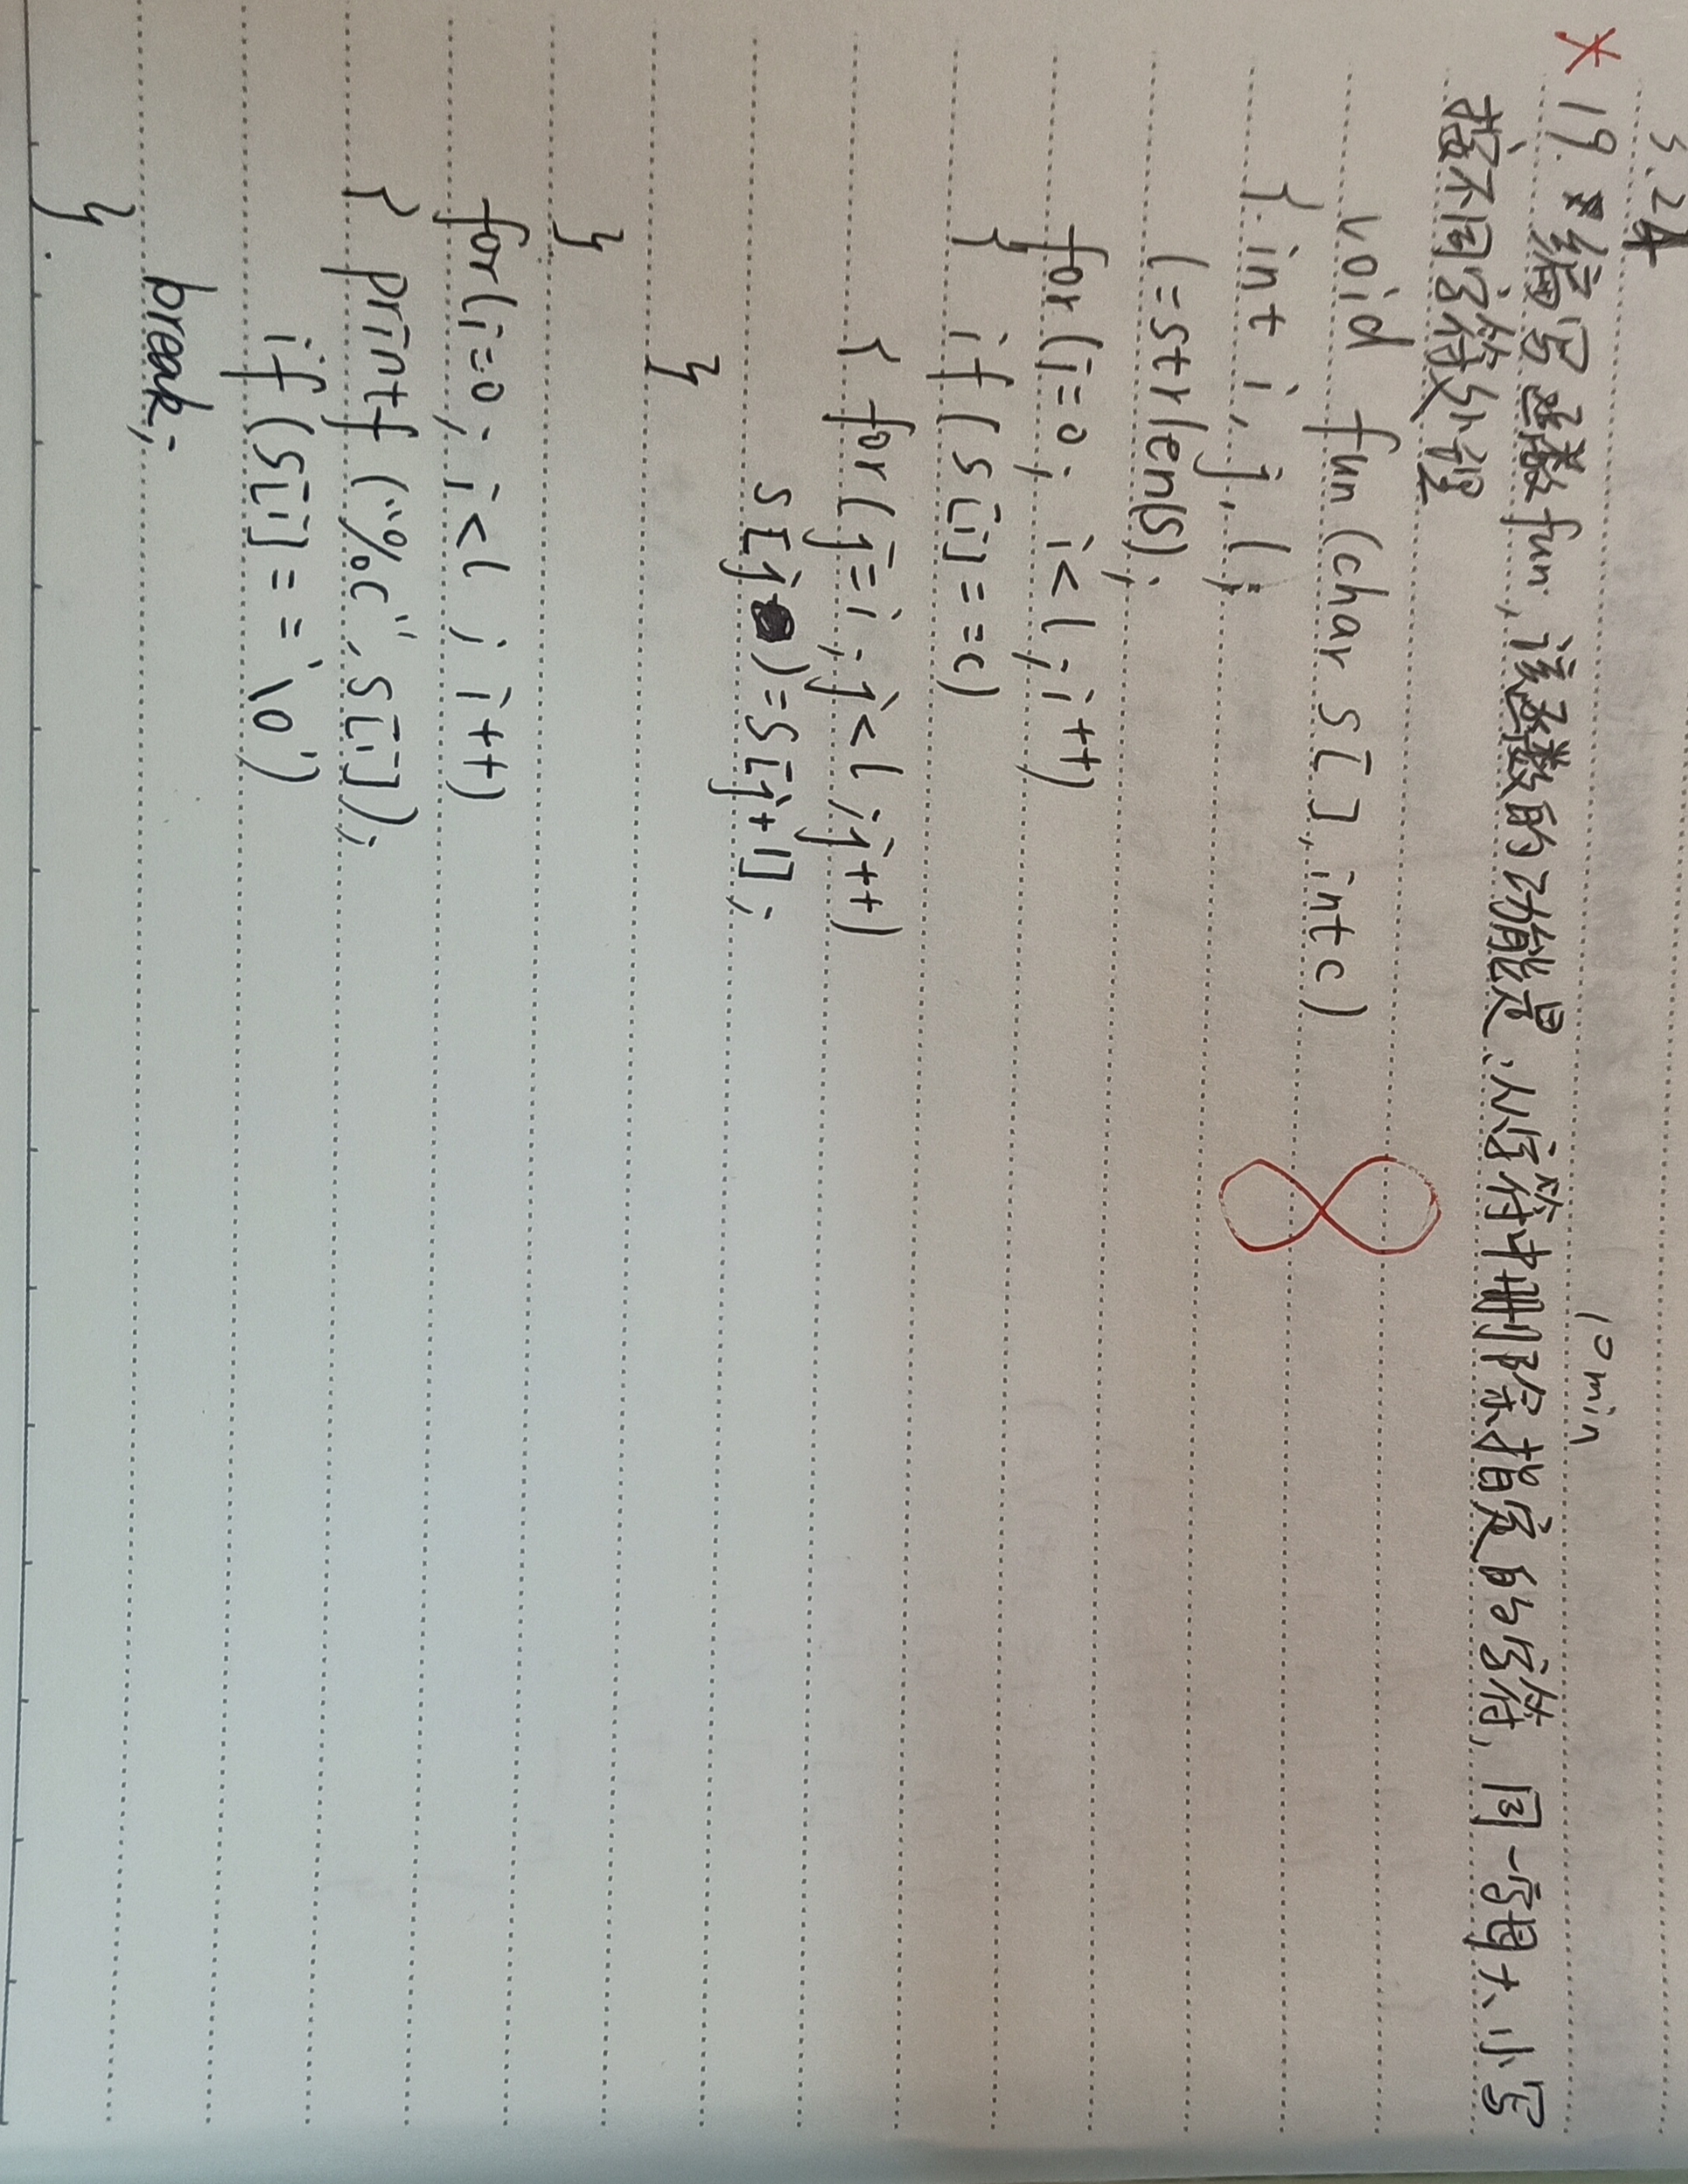 3.24
10min
19. 编写函数fun,该函数的功能是:从字符中删除指定的字符,同一字母大、小写
按不同字符处理
void fun(char s[],int c)
{ int i,j,l;
l=strlen(s);
for(i=0; i<l; i++)
{ if(s[i]==c)
{ for(j=i;j<l;j++)
s[j)=s[j+1];
}
}
for(i=0; i<l; i++)
{ printf("%c",s[i]);
if(s[i]=='\0')
break;
}